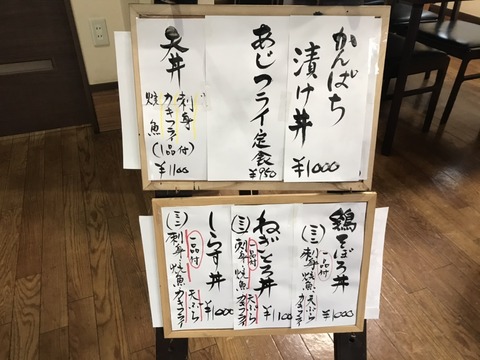 かんぱち
漬け丼
¥1000
あじフライ定食
¥950
天丼
刺身
カキフライ
焼魚
(一品付)
¥1100
鶏そぼろ丼
¥1000
一品付
(ミニ)
天ぷら
刺身・焼魚
カキフライ
ねぎとろ丼
¥1100
一品付
(ミニ)
天ぷら
刺身・焼魚
カキフライ
しらす丼
¥1000
一品付
(ミニ)
天ぷら
刺身・焼魚
カキフライ